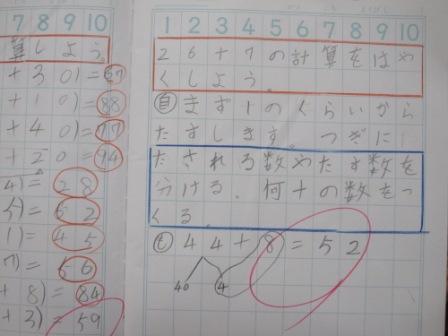 7 8 9 10
算しよう。
+30)=37
+10)=88
+40)=77
+20=94
4)=28
5)=62
1)=45
7)=56
+8)=84
+3)=59
1 2 3 4 5 6 7 8 9 10
26+7の計算をはや
くしよう。
自まず1のくらいから
たすします。つぎに
たされる数やたす数を
分ける。何十の数をつ
くる。
も44+8=52
40 4